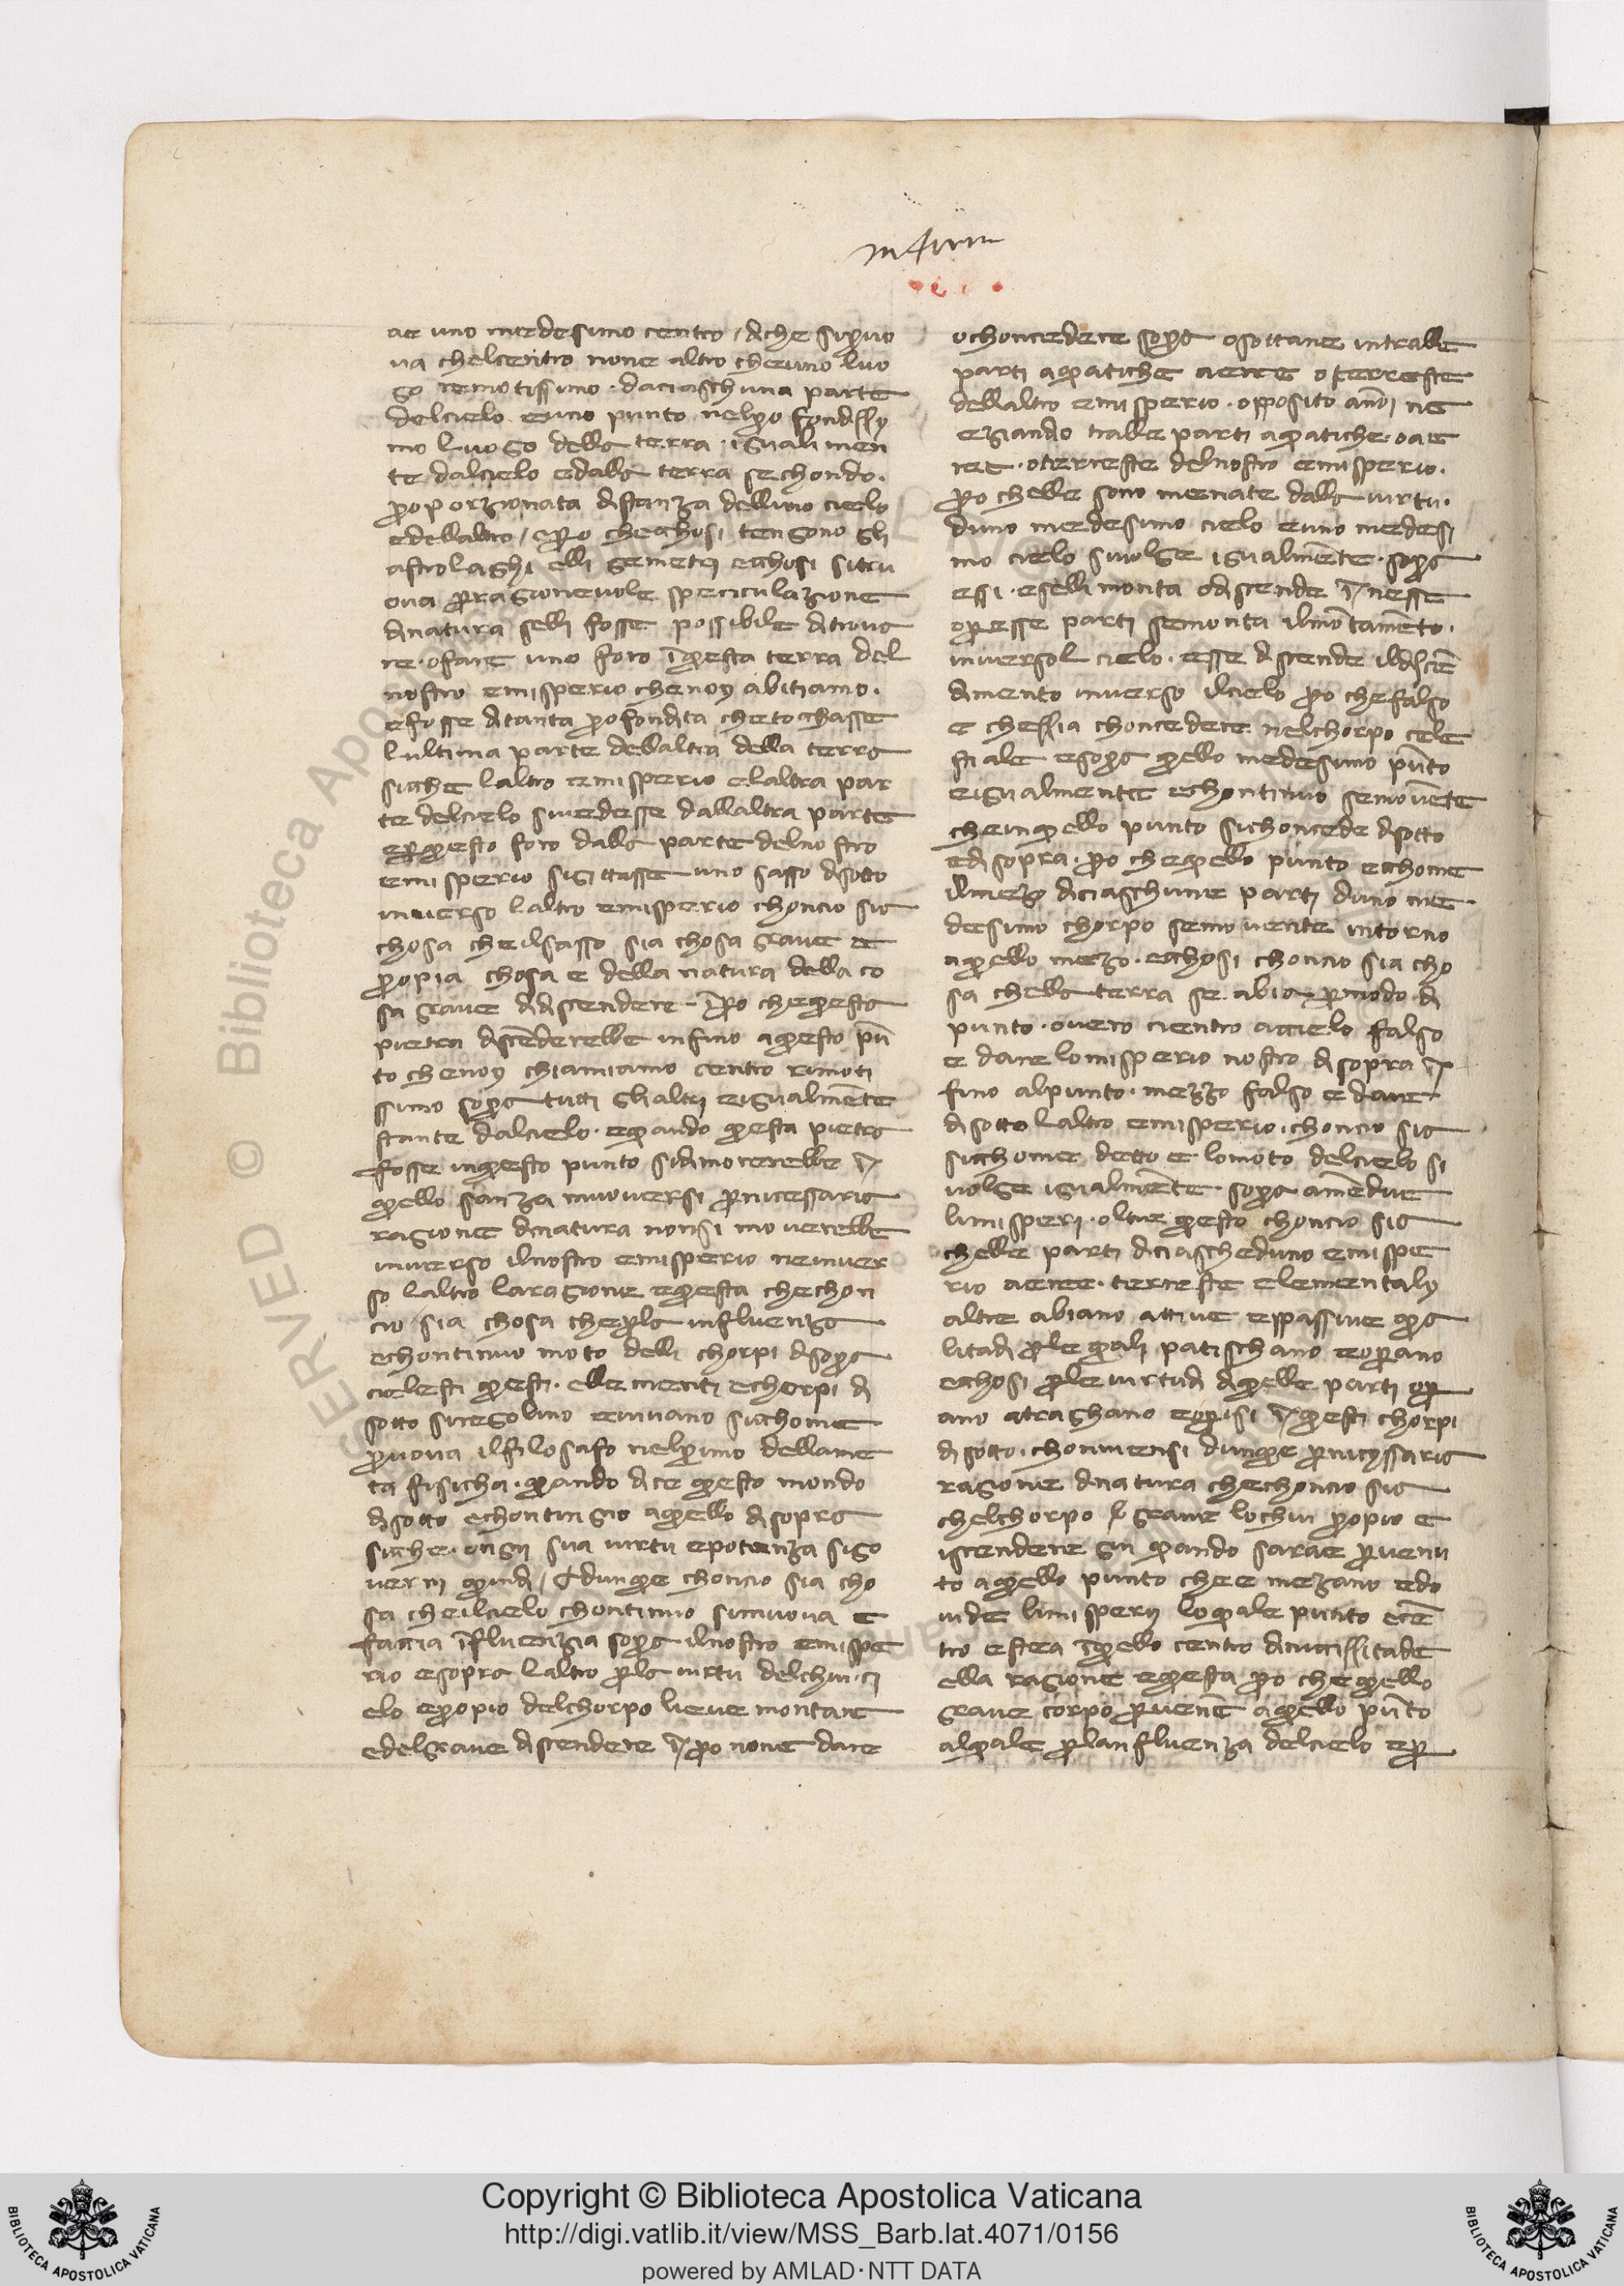 ae uno medesimo centro / di che si pruo
va chelcentro none altro cheuno luo
go remotissimo · daciaschuna parte
delcielo euno punto nelpro fondissi
mo luogo della terra · igualmen
te dalcielo edalla terra sechondo ·
proporzionata distanza delluno cielo
edellaltro / epero chechosi tengono gli
astrolaghi elli gemetri echosi sitru
ova per ragionevole speculazione
dinatura selli fosse possibile ditrova
re · ofare uno foro īquesta terra del
nostro emisperio chenoy abitiamo ·
efosse ditanta profondita chetochasse
lultima parte dellaltra della terra
sicche laltro emisperio elaltra par
te delcielo sivedesse dallaltra parte
eperquesto foro dalla parte delnostro
emisperio sigittasse uno sasso disotto
inverso laltro emisperio choncio sia
chosa cheilsasso sia chosa grave e
propia chosa e della natura della co
sa grave didiscendere · īpero chequesta
pietra discēderebbe infino aquesto pū
to chenoy chiamiamo centro rimoti
ssimo sopra tutti glialtri eigualmēte
stante dalcielo · equando questa pietra
fosse inquesto punto sidimorerebbe ī
quello sanza muoversi pernicessaria
ragione dinatura nonsi moverebbe
inverso ilnostro emisperio neinver
so laltro laragione equesta chechon
cio sia chosa cheperla influenza
echontinuo moto delli chorpi disopra
cielesti questi · ellementi echorpi di
sotto siregolino evivano sichome
pruova ilfilosafo nelprimo dellame
ta fisicha · quando dice questo mondo
disotto echontingio aquello disopra
sicche · ongni sua virtu epotenza sigo
verni quindi / Edunque choncio sia cho
sa cheilcielo chontinuo simuova e
faccia īfluenzia sopra ilnostro emispe
rio esopra laltro perla virtu delchui ci
elo epropio delchorpo lieve montare
edelgrave discendere īpero none dare
ochoncedere sopra osottane intralle
parti aquatiche aeree oterreste
dellaltro emisperio · opposito anoi ne
eziandio tralle parti aquatiche · oae
ree · oterreste delnostro emisperio ·
pero chelle sono menate dalla virtu ·
duno medesimo cielo euno medesi
mo cielo sivolge igualmēte · sopra
essi · eselli monta odiscende ī nesse
operesse parti semonta ilmōtamēto ·
inversol cielo · esse discende ildiscē
dimento inverso ilcielo pero chefalso
e chessia choncedere nelchorpo cele
stiale esopra quello medesimo pūto
eigualmente echontinuo semovēte
cheinquello punto sichoncede disotto
edisopra · pero chequello punto echome
ilmezo diciaschune parti duno me
desimo chorpo semovente intorno
aquello mezo · echosi choncio sia cho
sa chella terra se abia permodo di
punto · overo cientro accielo falso
e dare lomisperio nostro disopra ī
fino alpunto · mezzo falso e dare
disotto laltro emisperio · choncio sia
sicchome detto e lomoto delcielo si
volge igualmēte · sopra amēdue
limisperi · oltre questo choncio sia
chelle parti diciascheduno emispe
rio aeree · terreste elementaly
altre abiano attive eppassive qua
litadi perle quali patischano eoperano
echosi perle virtudi diquelle parti oper
ano atraghano eoperisi ī questi chorpi
disotto · chonviensi dunque pernicissaria
ragione dinatura chechoncio sia
chelchorpo grave lochui propio e
iscendere giu quando sarae pervenu
to aquello punto chee mezano edo
vide limisperii loquale punto ecē
tro estea īquello centro dinicissitade
ella ragione equesta pero chequello
grave corpo pervenē aquello pūto
alquale perlanfluenza delcielo eper